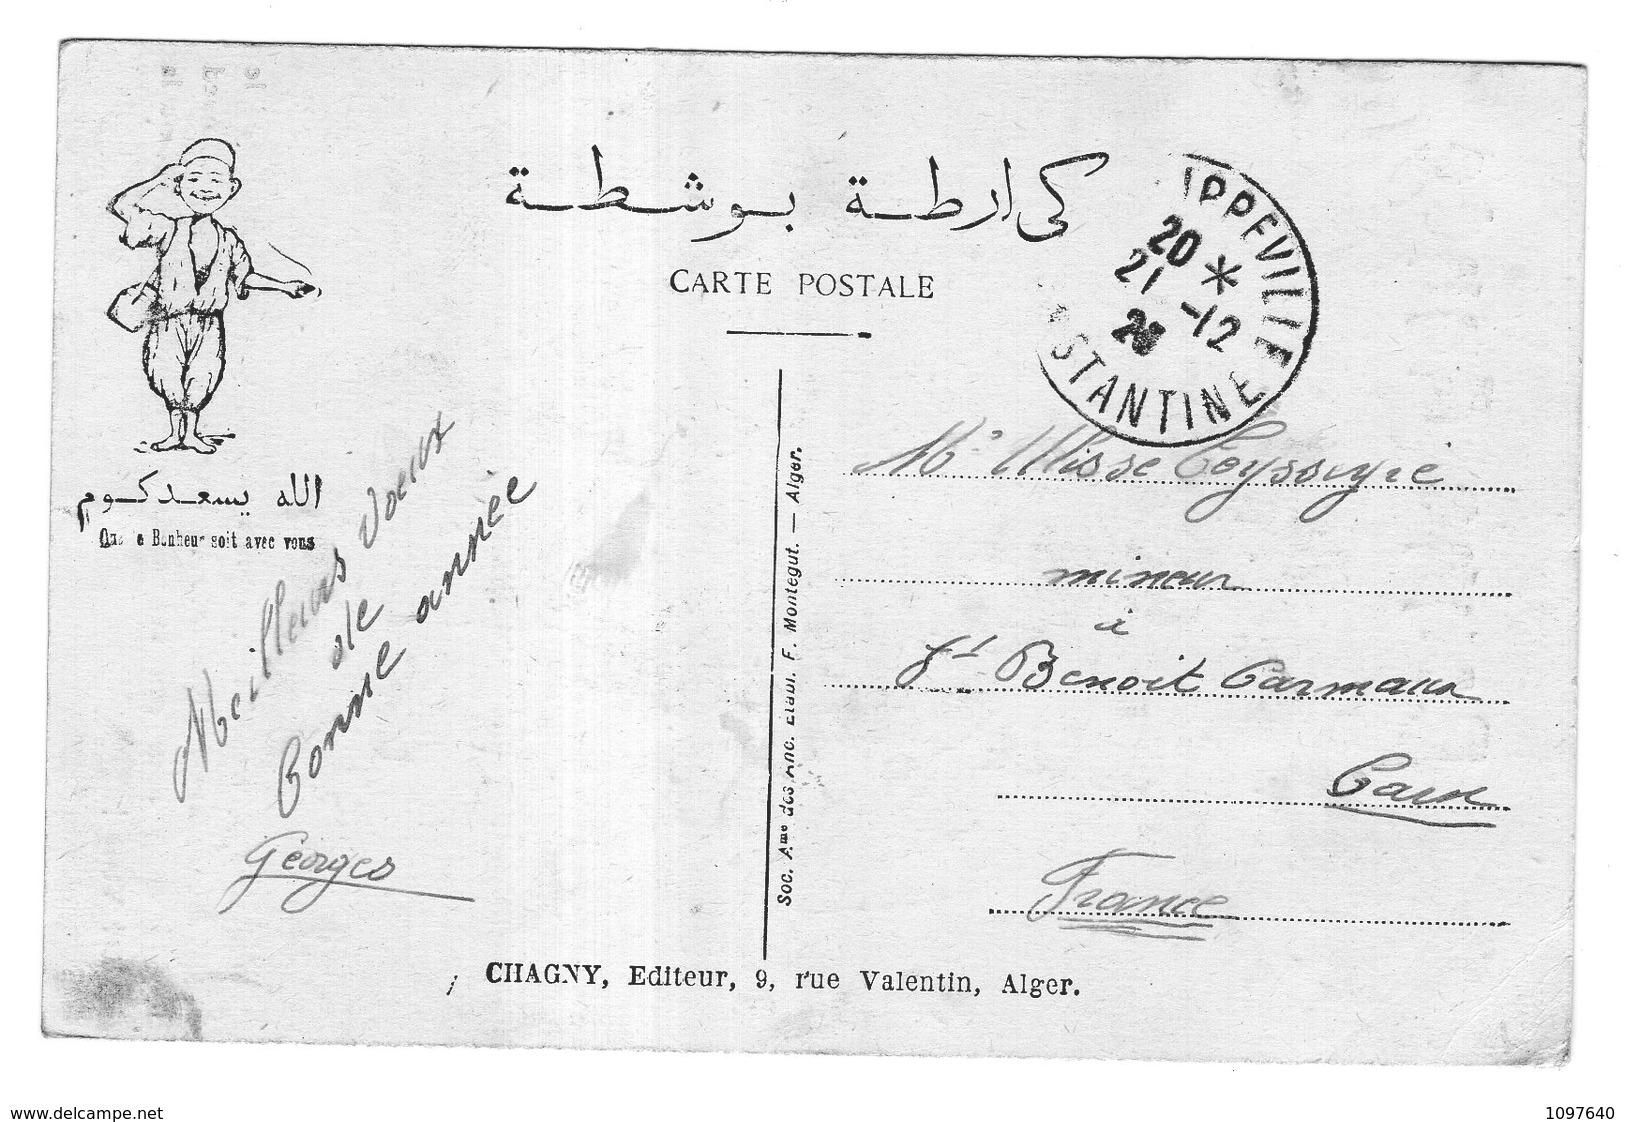 كارطة بوشطة
CARTE POSTALE
IPPEVILLE
20 *
21 -12
STANTINE
الله يسعدكوم
Que e Bonheur soit avec vous
Meilleurs voeux
de
bonne année
Georges
Soc. Ame des Anc. Etabl. F. Montégut. — Alger.
Mr Ulisse Teysseyre
mineur
à
St Benoit Carmaux
Tarn
France
CHAGNY, Editeur, 9, rue Valentin, Alger.
www.delcampe.net
1097640